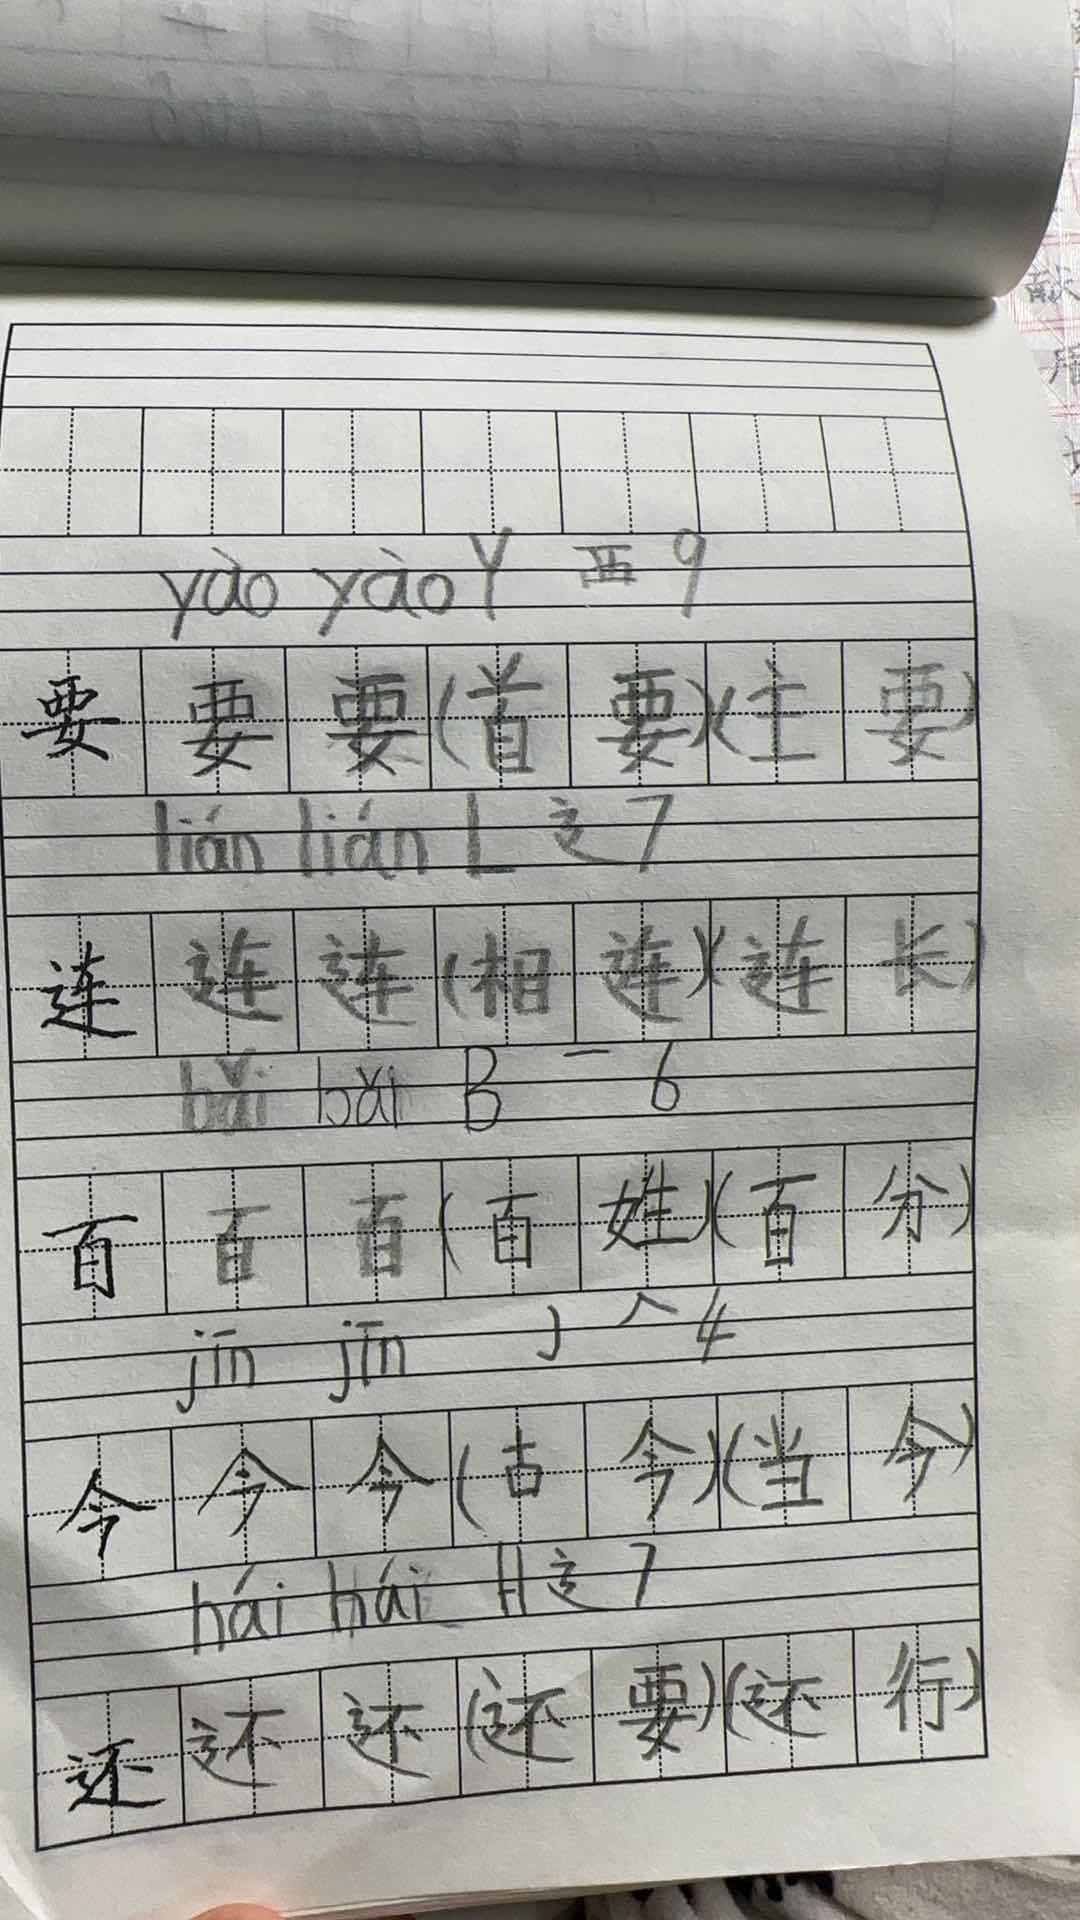 yào yào Y 覀 9
要 要 要 (首 要)(主 要)
lián lián L 辶 7
连 连 连 (相 连)(连 长)
bǎi bǎi B 一 6
百 百 百 (百 姓)(百 分)
jīn jīn J 𠆢 4
今 今 今 (古 今)(当 今)
hái hái H 辶 7
还 还 还 (还 要)(还 行)